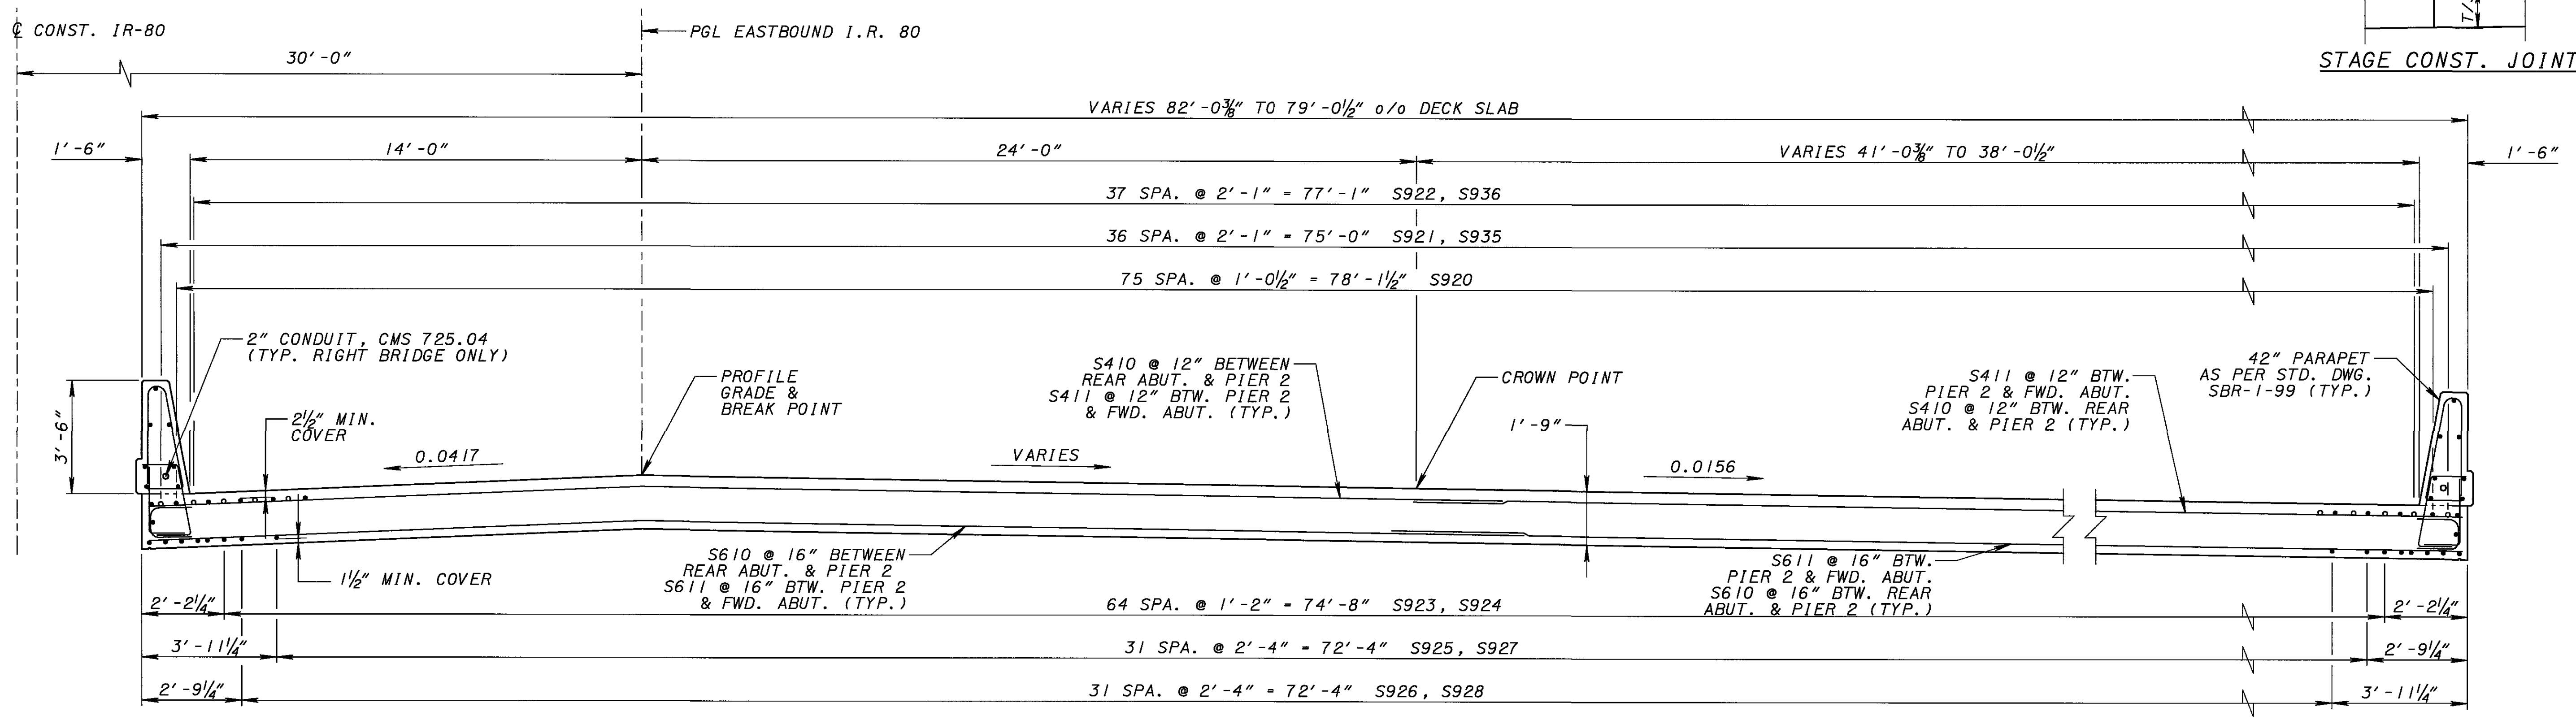 ℄ CONST. IR-80
PGL EASTBOUND I.R. 80
T/
STAGE CONST. JOINT
30'-0"
VARIES 82'-0⅜" TO 79'-0½" o/o DECK SLAB
1'-6"
14'-0"
24'-0"
VARIES 41'-0⅜" TO 38'-0½"
1'-6"
37 SPA. @ 2'-1" = 77'-1" S922, S936
36 SPA. @ 2'-1" = 75'-0" S921, S935
75 SPA. @ 1'-0½" = 78'-1½" S920
2" CONDUIT, CMS 725.04
(TYP. RIGHT BRIDGE ONLY)
PROFILE
GRADE &
BREAK POINT
S410 @ 12" BETWEEN
REAR ABUT. & PIER 2
S411 @ 12" BTW. PIER 2
& FWD. ABUT. (TYP.)
CROWN POINT
S411 @ 12" BTW.
PIER 2 & FWD. ABUT.
S410 @ 12" BTW. REAR
ABUT. & PIER 2 (TYP.)
42" PARAPET
AS PER STD. DWG.
SBR-1-99 (TYP.)
3'-6"
2½" MIN.
COVER
1'-9"
0.0417
VARIES
0.0156
1½" MIN. COVER
S610 @ 16" BETWEEN
REAR ABUT. & PIER 2
S611 @ 16" BTW. PIER 2
& FWD. ABUT. (TYP.)
S611 @ 16" BTW.
PIER 2 & FWD. ABUT.
S610 @ 16" BTW. REAR
ABUT. & PIER 2 (TYP.)
2'-2¼"
64 SPA. @ 1'-2" = 74'-8" S923, S924
2'-2¼"
3'-11¼"
31 SPA. @ 2'-4" = 72'-4" S925, S927
2'-9¼"
2'-9¼"
31 SPA. @ 2'-4" = 72'-4" S926, S928
3'-11¼"